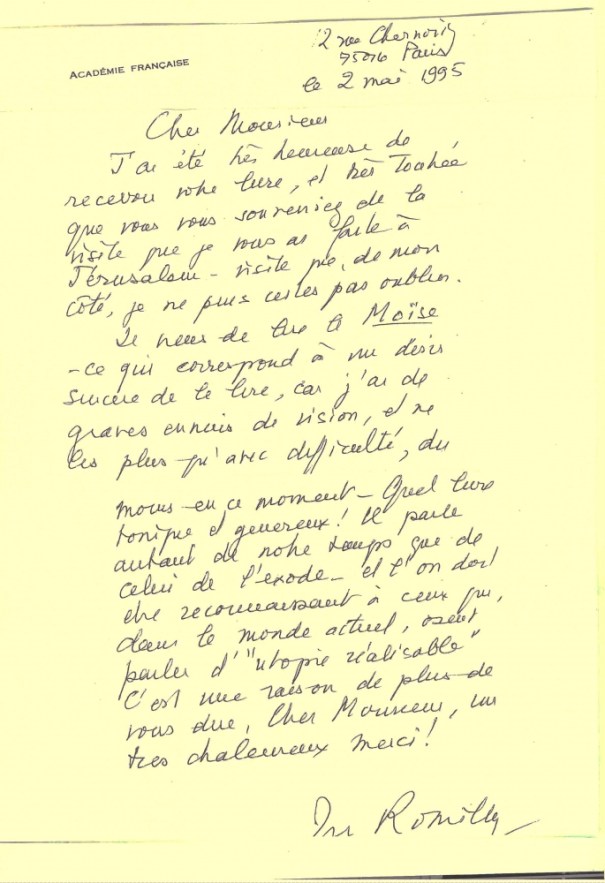 ACADÉMIE FRANÇAISE
12 rue Chernoviz
75016 Paris
le 2 mai 1995
Cher Monsieur
J'ai été très heureuse de
recevoir votre livre, et très touchée
que vous vous souveniez de la
visite que je vous ai faite à
Jérusalem - visite que, de mon
côté, je ne puis certes pas oublier.
Je viens de lire le Moïse
- ce qui correspond à un désir
sincère de le lire, car j'ai de
graves ennuis de vision, et ne
lis plus qu'avec difficulté, du
moins en ce moment - Quel livre
tonique et généreux! Il parle
autant de notre temps que de
celui de l'exode - et l'on doit
être reconnaissant à ceux qui,
dans le monde actuel, osent
parler d'"utopie réalisable"
C'est une raison de plus de
vous dire, Cher Monsieur, un
très chaleureux merci!
Romilly